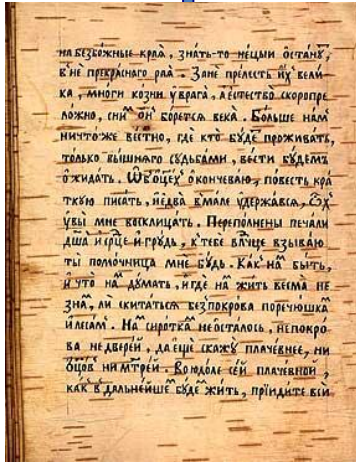 на безбожные края, знать-то нецыи останꙋ,
в' не прекраснаго рая. Зане прелесть их вели-
ка, многи козни ꙋ врага, а естество скоропре
ложно, сни он борется века. Больше нам
ничтоже вестно, где кто бꙋде проживать,
только вышняго сꙋдьбами, вести бꙋдемъ
ожидать. Ѿ обоцех окончеваю, повесть кра
ткую писать, и едва вмале ꙋдержався, Ѽх
ꙋвы мне восклицать. Переполнены печали
дша и срце и грꙋдь, к' тебе влчце взываю
ты помочница мне бꙋдь. Как на быть,
и что на дꙋмать, и где на жить весма не
зна, ли скитаться без покрова поречюшка
и лесам. На сиротка не осталось, ни покро
ва не дверей, да еще скажꙋ плачевнее, ни
оцов ни мтрей. Во юдоле сей плачевной,
как в дальнейше бꙋде жить, прїидите вси